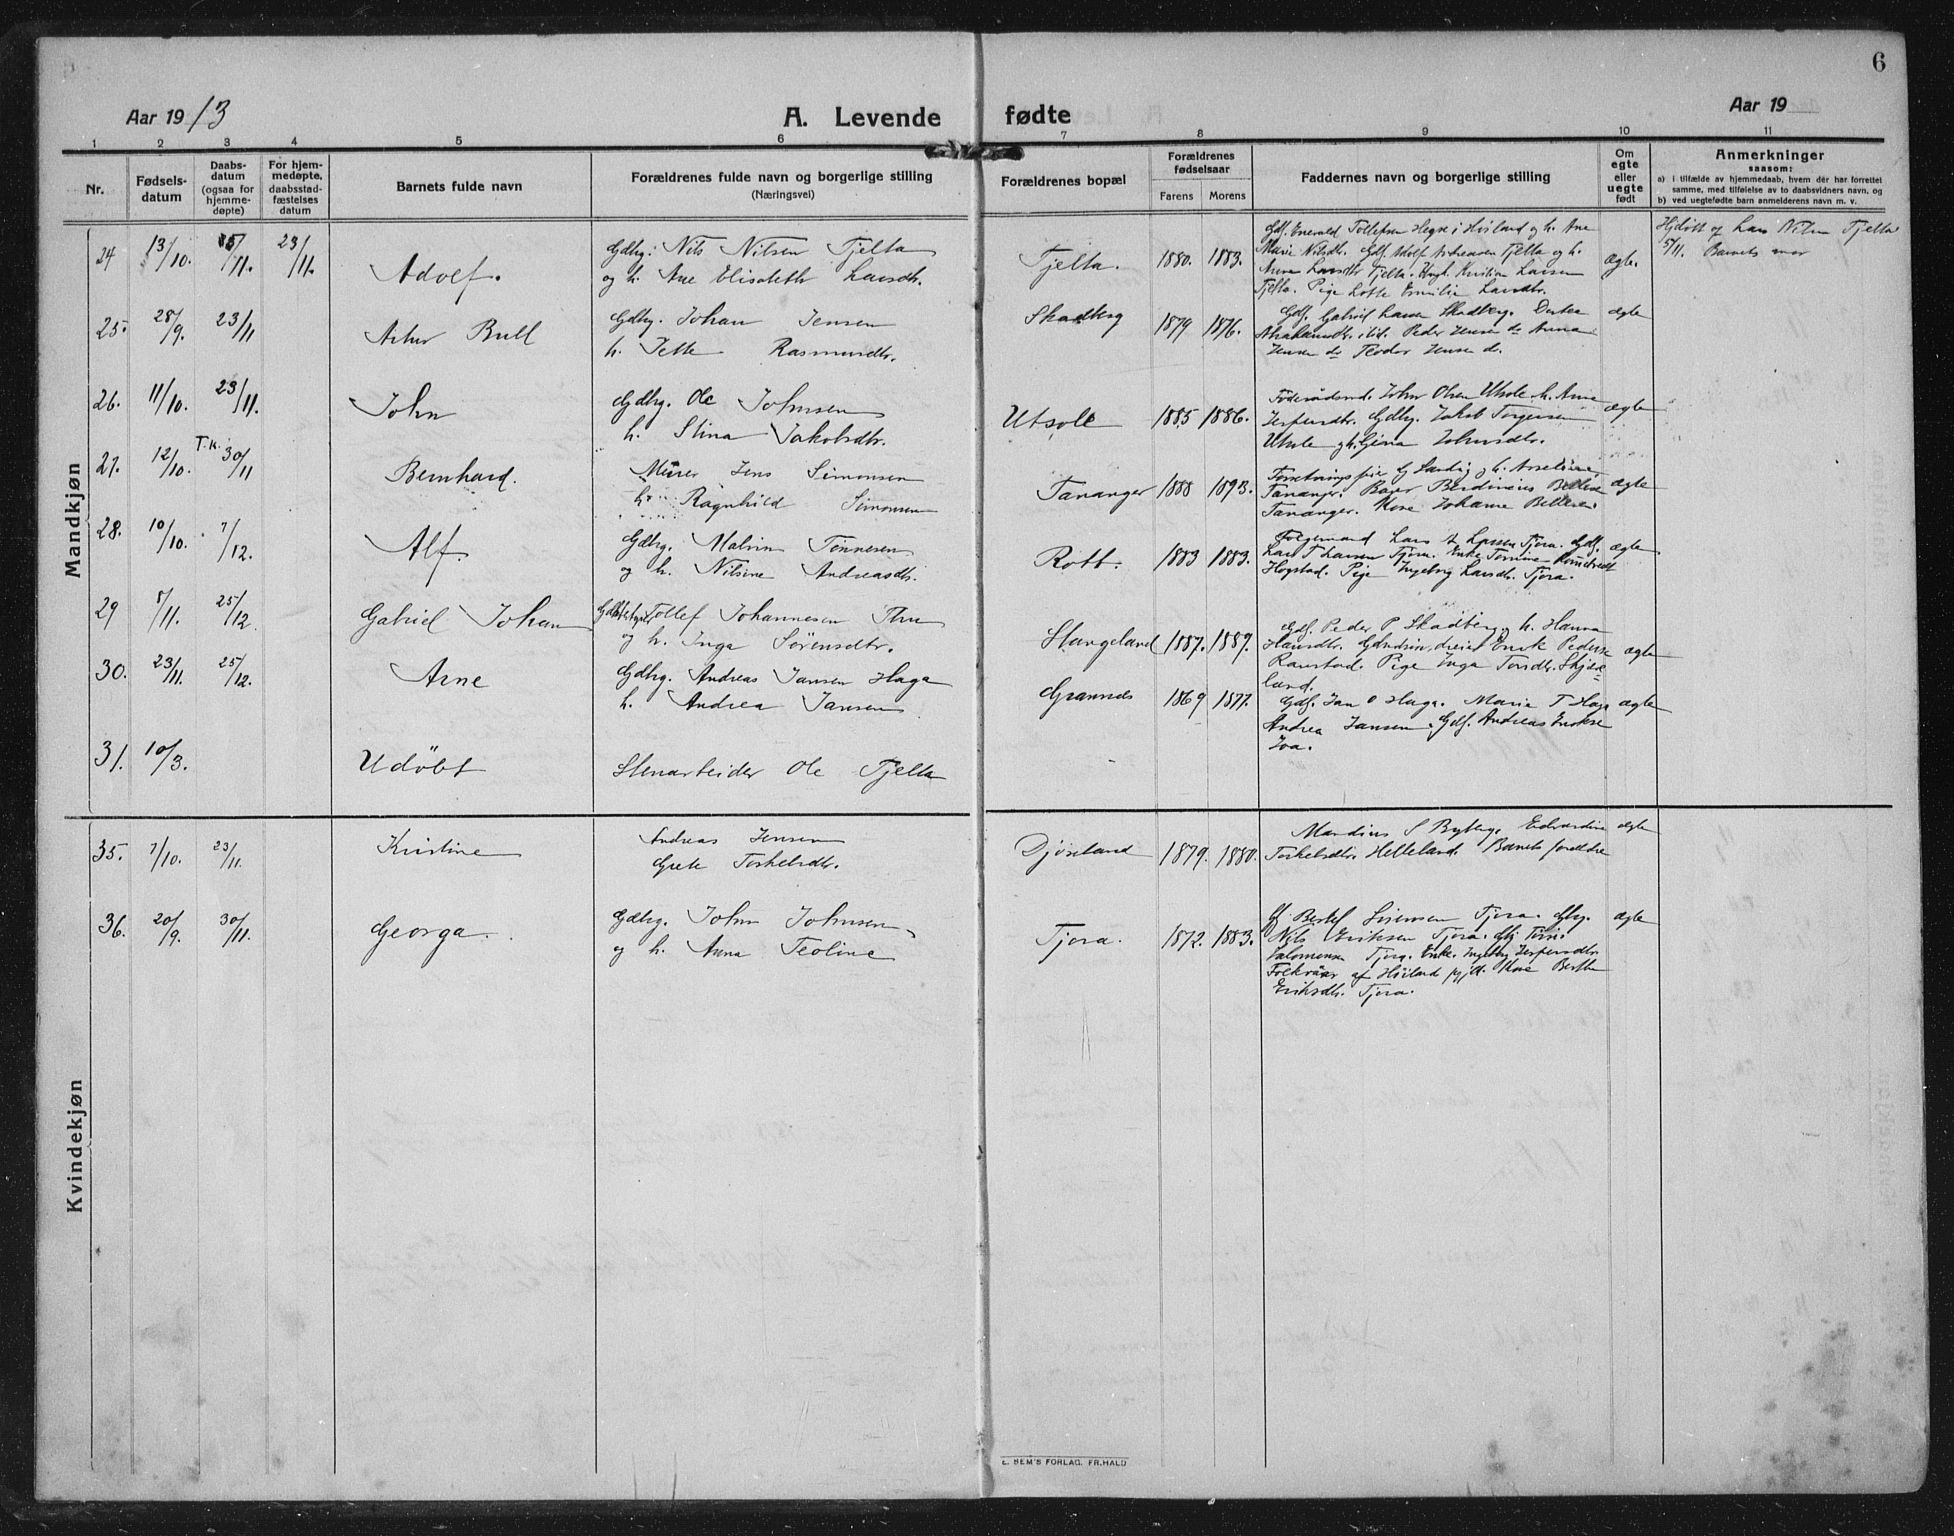 6
Aar 1913
A. Levende fødte
Aar 19
1 2 3 4 5 6 7 8 9 10 11
Nr.
Fødsels-
datum
Daabs-
datum
(ogsaa for
hjemme-
døpte)
For hjem-
medøpte,
daabsstad-
fæstelses
datum
Barnets fulde navn
Forældrenes fulde navn og borgerlige stilling
(Næringsvei)
Forældrenes bopæl
Forældrenes
fødselsaar
Farens Morens
Faddernes navn og borgerlige stilling
Om
egte
eller
uegte
født
Anmerkninger
saasom:
a) i tilfælde av hjemmedaab, hvem dér har forrettet
samme, med tilføielse av to daabsvidners navn, og
b) ved uegtefødte barn anmelderens navn m. v.
Mandkjøn
24 13/10. 5/11. 23/11. Adolf. Gdbg. Nils Nilsen Tjelta
og h. Ane Elisabeth Larsdtr.
Tjelta. 1880. 1883.
Gdf. Enevald Tollefsen Hegre i Høiland og h. Ane
Marie Nilsdtr. Gdf. Adolf Andreasen Tjelta og h.
Anna Larsdtr Tjelta. Ungk. Kristian Larsen
Tjelta. Pige Lotte Emilie Larsdtr.
ægte.
Hjdöbt af Lars Nilsen Tjelta
5/11. Barnets mor
25. 28/9. 23/11 Artur Bull Gdbg. Johan Jensen
h. Jette Rasmusdtr.
Skadberg 1879 1876.
Gdf. Gabriel Larsen Skadberg. Dortea
Abrahamsdtr. ibid. Peder Jensen do Anna
Jensen do Teodor Jensen do.
ægte
26. 11/10. 23/11. John Gdbg. Ole Johnsen
h. Stina Jakobsdtr.
Utsole 1885 1886.
Föderådsmd. John Olsen Utsole h. Anna
Jespersdtr. Gdbg. Jakob Torgersen
Utsole og h. Gina Johnsdtr.
ægte
27. 12/10. T.K. 30/11 Bernhard. Murer Jens Simonsen
h. Ragnhild Simonsen
Tananger 1888 1893.
Tananger. Bager Berdinius
Tananger. Kone Johanne
ægte
28. 10/10. 7/12. Alf. Gdbg. Malvin Tønnesen
og h. Nilsine Andreasdtr.
Rott. 1883 1883.
Lars Larsen Tjora. Gdf.
Lars T Larsen Tjora. Enke Tomine
Hogstad. Pige Ingeborg Larsdtr. Tjora.
ægte
29 8/11. 25/12. Gabriel Johan Tollef Johannesen Thu
og h. Inga Sørensdtr.
Stangeland 1887. 1889.
Gdf. Peder P Skadberg h. Hanna
Hansdtr. Erik Pedersen
Raustad. Pige Inga Torsdtr. Skjæ-
land.
ægte
30. 23/11. 25/12. Arne Gdbg. Andreas Jansen Haga
h. Andrea Jansen
Grannes 1869 1877.
Gdf. Jan O Haga. Maria T Haga
Andrea Jansen. Gdf. Andreas Eriksen
Joa.
ægte
31. 10/3. Udöbt Stenarbeider Ole Tjelta
Kvindekjøn
35. 7/10. 23/11. Kristine Andreas Jensen
Grete Torkelsdtr.
Djøseland 1879. 1880.
Mandius S Byberg. Edvardine
Torkelsdtr. Helleland. Barnets foreldre
ægte
36. 20/9. 30/11. Georga. Gdbg. John Johnsen
og h. Anna Teoline
Tjora. 1872. 1883.
Gf. Bertel Sivensen Tjora. Gbg.
Nils Eriksen Tjora.
Salomonsen Tjora. Enke. Ingeborg Jespersdtr.
af Höiland pgjld. Kone Berthe
Eriksdtr. Tjora.
ægte
E. SEM'S FORLAG. FR.HALD